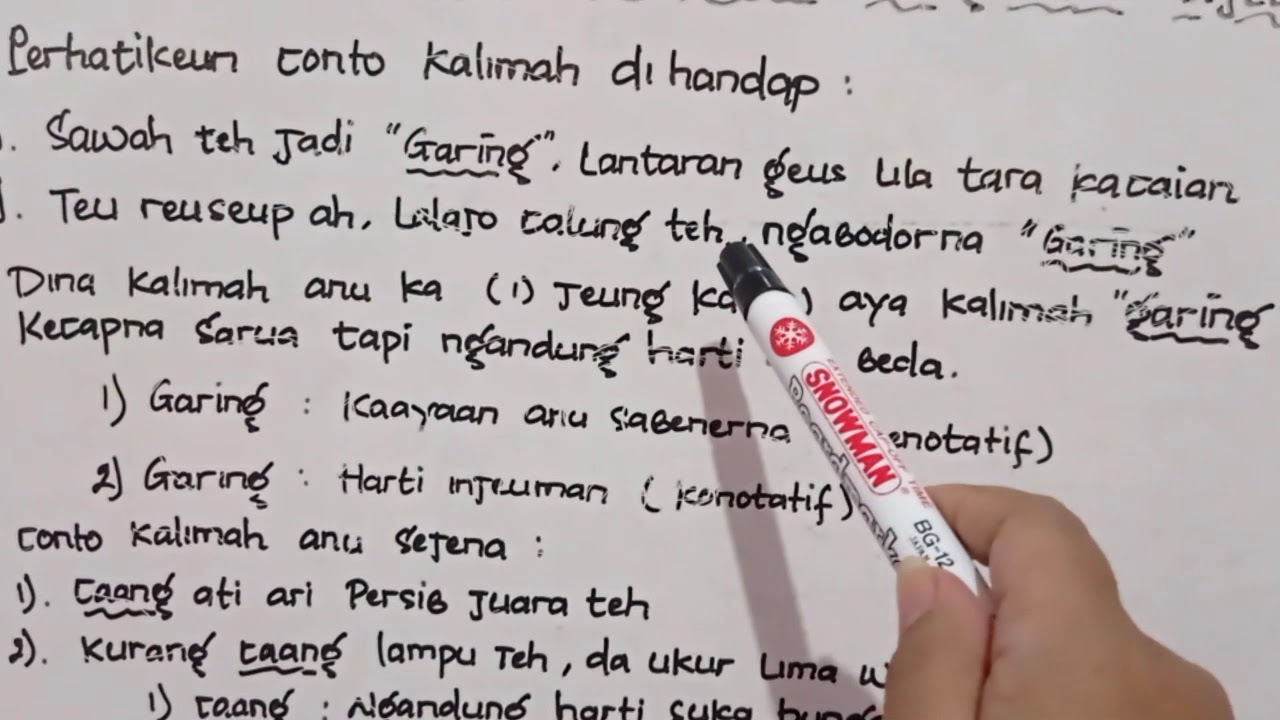 Perhatikeun conto kalimah di handap :
. Sawah teh jadi "Garing". Lantaran geus lila tara kacaian
. Teu reuseup ah, Lalajo calung teh, ngabodorna "Garing"
Dina kalimah anu ka (1) jeung ka ) aya kalimah "garing
Kecapna sarua tapi ngandung harti beda.
1) Garing : Kaayaan anu sabenerna enotatif)
2) Garing : Harti injeuman (konotatif)
conto kalimah anu sejena :
1). Caang ati ari Persib juara teh
2). Kurang caang lampu teh, da ukur lima w
1) caang : Ngandung harti suka bung
SNOWMAN
BG-12